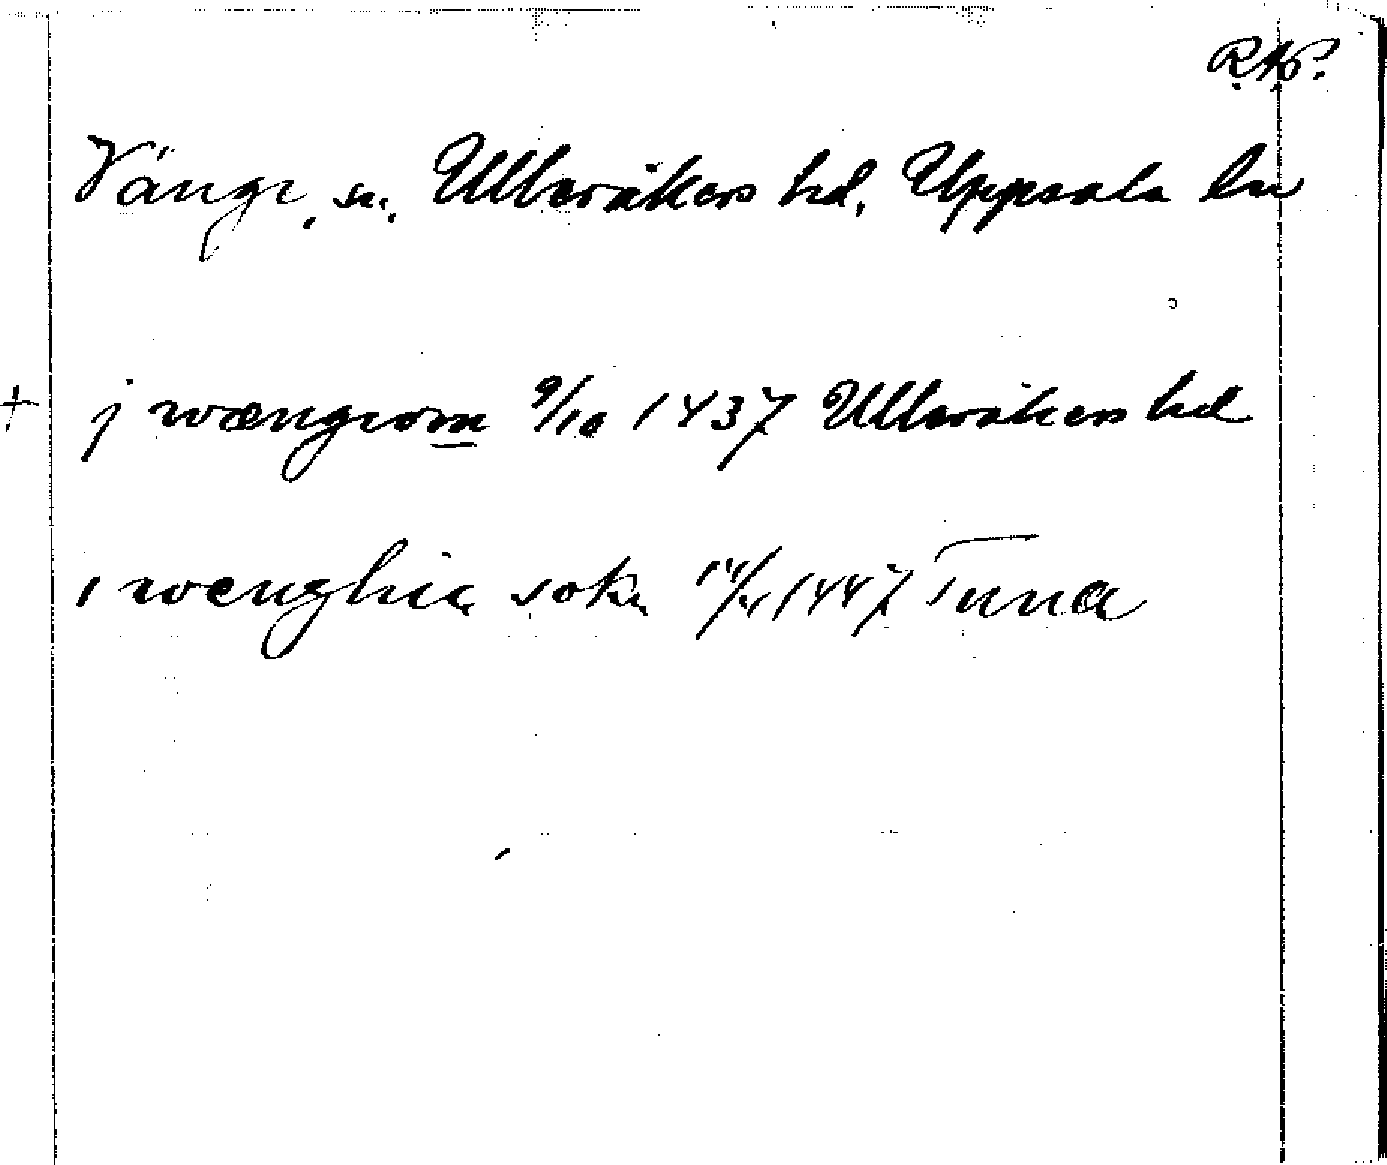 R.K.
Vänge, sn. Ulleråkers hd. Uppsala län
+ j wængiom 9/10 1437 Ulleråkers hd
i wænghia sokn 1447 Tuna